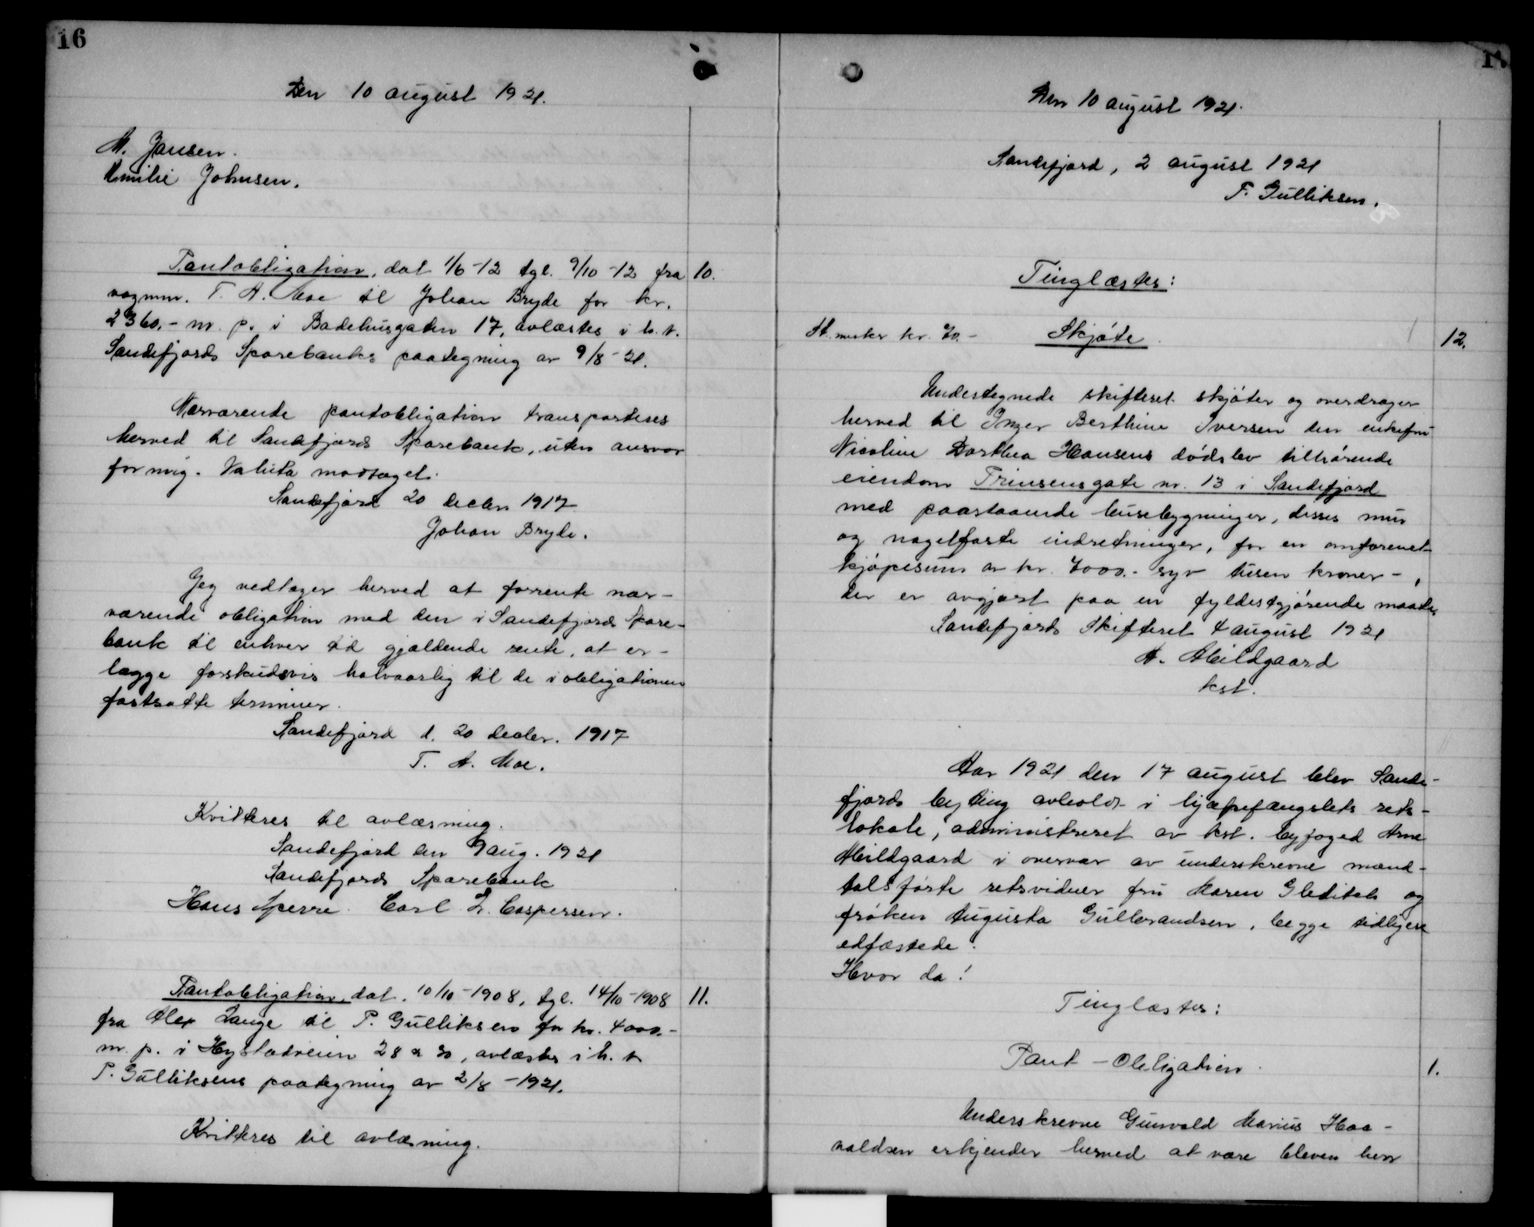 16
Den 10 august 1921.
M. Jansen.
Emilie Johnsen.
Pantobligation, dat 1/6-12 tgl. 9/10-12 fra 10.
vognm. T. A. Moe til Johan Bryde for kr.
2360,- m. p. i Badehusgaten 17, avlæstes i h. t.
Sandefjords Sparebanks paategning av 9/8-21.
Nærværende pantobligation transporteres
herved til Sandefjords Sparebank, uten ansvar
for mig. Valuta modtaget.
Sandefjord 20 decbr 1917
Johan Bryde.
Jeg vedtager herved at forrente nær-
værende obligation med den i Sandefjords Spare-
bank til enhver tid gjældende rente, at er-
lægge forskudsvis halvaarlig til de i obligationen
fastsatte terminer.
Sandefjord d. 20 decbr. 1917
T. A. Moe.
Kvitteres til avlæsning.
Sandefjord den 9 aug. 1921
Sandefjords Sparebank
Hans Sperre. Carl L. Caspersen.
Pantobligation, dat. 10/10-1908, tgl. 14/10-1908 11.
fra Alex Lange til P. Gulliksen for kr. 4000.-
m. p. i Hystadveien 28 & 30, avlæstes i h. t.
P. Gulliksens paategning av 2/8-1921.
Kvitteres til avlæsning.
Den 10 august 1921.
Sandefjord, 2 august 1921
P. Gulliksen.
Tinglæstes:
St. merker kr. 70.- Skjøte. 12.
Undertegnede skifteret skjøter og overdrager
herved til Inger Berthine Iversen den enkefru
Nicoline Dorthea Hansens dødsbo tilhørende
eiendom Prinsensgate nr. 13 i Sandefjord
med paastaaende husebygninger, disses mur
og nagelfaste indretninger, for en omforenet
kjøpesum av kr. 7000.- syv tusen kroner -,
der er avgjort paa en fyldestgjørende maate,
Sandefjords Skifteret 4 august 1921
A. Abildgaard
kst.
Aar 1921 den 17 august blev Sande-
fjords byting avholdt i hjælpefængslets rets-
lokale, administreret av kst. byfoged Arne
Abildgaard i overvær av underskrevne mænd-
talsførte retsvidner fru Maren Gleditch og
frøken Augusta Gulbrandsen, begge tidligere
edfæstede.
Hvor da!
Tinglæstes:
Pant - Obligation. 1.
Underskrevne Gunvald Marius Haa-
valdsen erkjender herved at være bleven herr